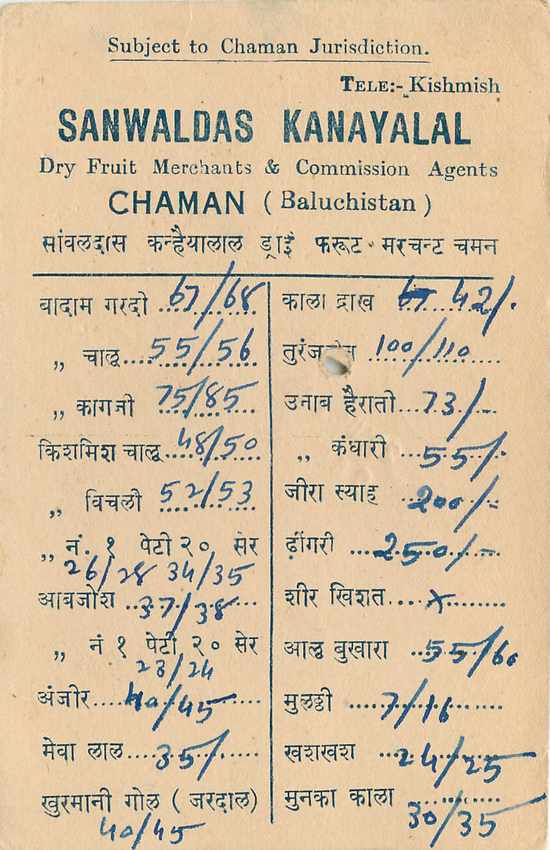 Subject to Chaman Jurisdiction.
TELE:- Kishmish
SANWALDAS KANAYALAL
Dry Fruit Merchants & Commission Agents
CHAMAN (Baluchistan)
सांवलदास कन्हैयालाल ड्राई फरूट मरचन्ट चमन
बादाम गरदी ... 67/68
„ चालू .... 55/56
„ कागजी 75/85
किशमिश चालू .... 48/50
„ विचली 52/53
„ नं. १ पेटी २० सेर
26/28 34/35
आबजोश .. 37/38
„ नं १ पेटी २० सेर
23/24
अंजीर.... 40/45
मेवा लाल.... 35/
खुरमानी गोल ( जरदाल)
40/45
काला द्राख 42/.
100/110
उनाब हैराती... 73/-
„ कंधारी .... 55/-
जीरा स्याह ... 200/-
ढ़ींगरी .... 250/-
शीर खिशत.... x
आलू बुखारा ... 55/60
मुलठ्ठी ..... 7/16
खशखश ... 24/25
मुनका काला
30/35